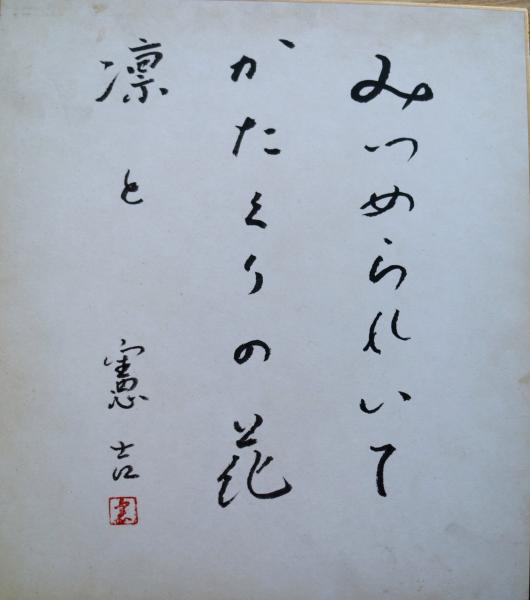 みつめられいて
かたくりの花
凛と
憲吉